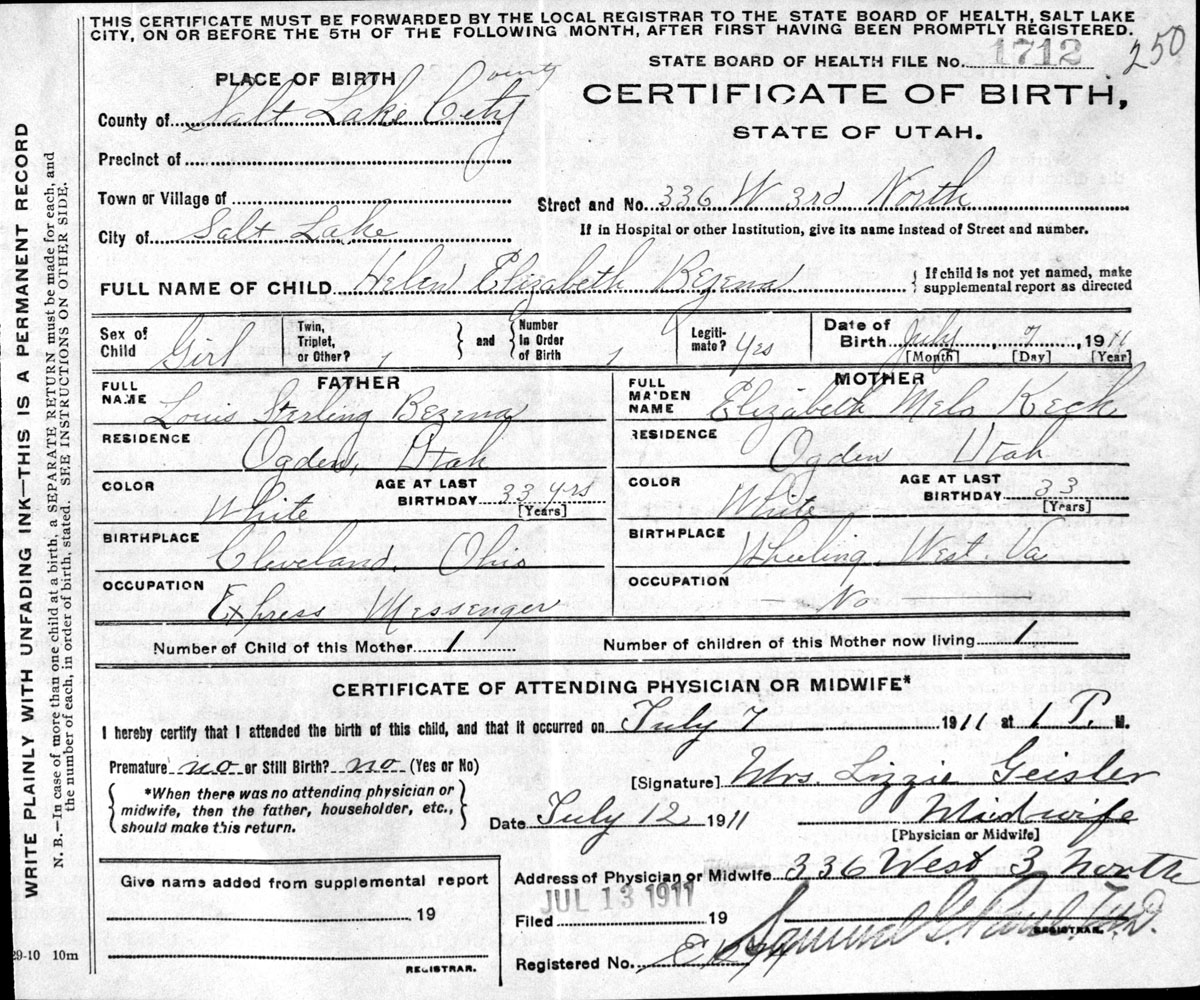 THIS CERTIFICATE MUST BE FORWARDED BY THE LOCAL REGISTRAR TO THE STATE BOARD OF HEALTH, SALT LAKE
CITY, ON OR BEFORE THE 5TH OF THE FOLLOWING MONTH, AFTER FIRST HAVING BEEN PROMPTLY REGISTERED.
STATE BOARD OF HEALTH FILE No. 1712
250
PLACE OF BIRTH
County
CERTIFICATE OF BIRTH,
STATE OF UTAH.
County of Salt Lake City
Precinct of
Town or Village of
Street and No. 336 W 3rd North
City of Salt Lake
If in Hospital or other Institution, give its name instead of Street and number.
FULL NAME OF CHILD Helen Elizabeth Bezena
If child is not yet named, make
supplemental report as directed
Sex of Child Girl
Twin, Triplet, or Other? 1
and
Number in Order of Birth 1
Legiti-mate? Yes
Date of Birth July 7, 1911
[Month] [Day] [Year]
FATHER
FULL NAME Louis Sterling Bezena
RESIDENCE Ogden, Utah
COLOR White
AGE AT LAST BIRTHDAY 33 yrs
[Years]
BIRTHPLACE Cleveland, Ohio
OCCUPATION Express Messenger
MOTHER
FULL MAIDEN NAME Elizabeth Keck
RESIDENCE Ogden Utah
COLOR White
AGE AT LAST BIRTHDAY 33
[Years]
BIRTHPLACE Wheeling West. Va
OCCUPATION — No —
Number of Child of this Mother 1
Number of children of this Mother now living 1
CERTIFICATE OF ATTENDING PHYSICIAN OR MIDWIFE*
I hereby certify that I attended the birth of this child, and that it occurred on July 7 1911 at 1 P. M.
Premature no or Still Birth? no (Yes or No)
*When there was no attending physician or
midwife, then the father, householder, etc.,
should make this return.
[Signature] Mrs. Lizzie Geisler
Date July 12 1911
Midwife
[Physician or Midwife]
Address of Physician or Midwife 336 West 3 North
Give name added from supplemental report
19
REGISTRAR.
JUL 13 1911
Filed 19
Samuel G. Paul M.D.
REGISTRAR.
Registered No.
29-10 10m
WRITE PLAINLY WITH UNFADING INK—THIS IS A PERMANENT RECORD
N. B.—In case of more than one child at a birth, a SEPARATE RETURN must be made for each, and
the number of each, in order of birth, stated. SEE INSTRUCTIONS ON OTHER SIDE.